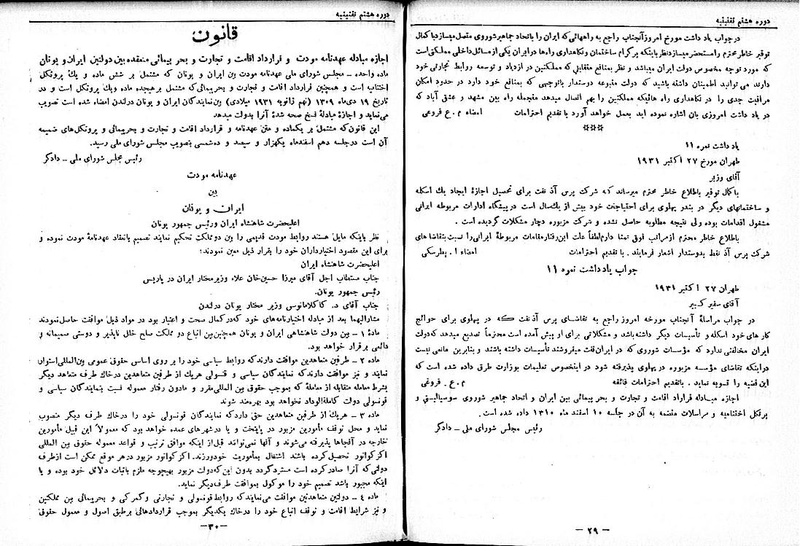 دوره هشتم تقنینیه
در جواب یاد داشت مورخ امروز آنجناب راجع به راههائی که ایران را باتحاد جماهیر شوروی متصل مینماید با کمال
توقیر خاطر محترم را مستحضر میسازد نظر باینکه پرگرام ساختمان و نگاهداری راه ها در ایران یکی از مسائل داخلی مملکتی است
که مورد توجه مخصوص دولت ایران میباشد و نظر بمنافع متقابلی که مملکتین در ازدیاد و توسعه روابط تجارتی خود
دارند می توانید اطمینان داشته باشید که دولت متبوعه دوستدار باتوجهی که بمنافع خود دارد در حدود امکان
مراقبت جدی را در نگاهداری راه هائیکه مملکتین را بهم اتصال میدهد منجمله راه بین مشهد و عشق آباد که
در یاد داشت امروزی بان اشاره نموده اید بعمل خواهد آورد با تقدیم احترامات امضاء م . ع فروغی
***
یاد داشت نمره ۱۱
طهران مورخ ۲۷ اکتبر ۱۹۳۱
آقای وزیر
با کمال توقیر باطلاع خاطر محترم میرساند که شرکت پرس آذ نفت برای تحصیل اجازۀ ایجاد یک اسکله
و ساختمانهای دیگر در بندر پهلوی برای احتیاجات خود بیش از یک سال است در پیشگاه ادارات مربوطه ایرانی
مشغول اقدامات بوده ولی نتیجه مطلوبه حاصل نشده و شرکت مزبوره دچار مشکلات گردیده است .
باطلاع خاطر محترم از مراتب فوق تمنا دارم لطفاً علت این رفتار مقامات مربوطۀ ایرانی را نسبت بتقاضاهای
شرکت پرس آذ نفط بدوستدار اشعار فرمایند . با تقدیم احترامات امضاء ا . پطرسکی
جواب یاد داشت نمره ۱۱
طهران ۲۷ اکتبر ۱۹۳۱
آقای سفیر کبیر
در جواب مراسلۀ آنجناب مورخه امروز راجع به تقاضای پرس آذ نفت که در پهلوی برای حوائج
کار های خود اسکله و تأسیسات دیگر داشته باشد و مشکلاتی برای او پیش آمده است محترماً تصدیع میدهد که دولت
ایران مخالفتی ندارد که مؤسسات شوروی که در ایران نفت میفروشند تأسیسات داشته باشند و بنابرین مانعی نیست
در اینکه تقاضای مؤسسه مزبوره در پهلوی پذیرفته شود در اینخصوص تعلیمات بوزارت طرق داده شده است که
این قضیه را تسویه نماید . با تقدیم احترامات فائقه م . ع . فروغی
اجازه مبادله قرارداد اقامت و تجارت و بحر پیمائی بین ایران و اتحاد جماهیر شوروی سوسیالیستی و
پرتکل اختتامیه و مراسلات منضمه به آن در جلسه ۱۰ اسفند ماه ۱۳۱۰ داده شده است .
رئیس مجلس شورای ملی - دادگر
- ۲۹ -
دوره هشتم تقنینیه
قانون
اجازه مبادله عهدنامه مودت و قرارداد اقامت و تجارت و بحر پیمائی منعقده بین دولتین ایران و یونان
ماده واحده - مجلس شورای ملی عهدنامه مودت بین ایران و یونان که مشتمل بر شش ماده و یک پروتکل
اختتامیه است و همچنین قرارداد اقامت و تجارت و بحر پیمائی که مشتمل بر هیجده ماده و یک پروتکل است و در
تاریخ ۱۹ دی ماه ۱۳۰۹ (نهم ژانویه ۱۹۳۱ میلادی) بین نمایندگان ایران و یونان در لندن امضاء شده است تصویب
می نماید و اجازۀ مبادلۀ نسخ صحه شدۀ آنرا بدولت میدهد
این قانون که مشتمل بر یک ماده و متن عهدنامه و قرارداد اقامت و تجارت و بحر پیمائی و پروتکل های ضمیمه
آن است در جلسه دهم اسفندماه یکهزار و سیصد و ده شمسی بتصویب مجلس شورای ملی رسید.
رئیس مجلس شورای ملی - دادگر
عهدنامه مودت
بین
ایران و یونان
اعلیحضرت شاهنشاه ایران و رئیس جمهور یونان
نظر باینکه مایل هستند روابط مودت قدیمی را بین دو مملکت تحکیم نمایند تصمیم بانعقاد عهدنامۀ مودت نموده و
برای این مقصود اختیارداران خود را بقرار ذیل معین نمودند:
اعلیحضرت شاهنشاه ایران
جناب مستطاب اجل آقای میرزا حسین خان علاء وزیر مختار ایران در پاریس
رئیس جمهور یونان .
جناب آقای د . کاکلامانوس وزیر مختار یونان در لندن
مشارالیهما بعد از مبادله اختیارنامه های خود که در کمال صحت و اعتبار بود در مواد ذیل موافقت حاصل نمودند
ماده ۱ - بین دولت شاهنشاهی ایران و یونان همچنین بین اتباع دو مملکت صلح خلل ناپذیر و دوستی صمیمانه و
دائمی برقرار خواهد بود.
ماده ۲ - طرفین متعاهدین موافقت دارند که روابط سیاسی خود را بر روی اساس حقوق عمومی بین المللی استوار
نمایند و نیز موافقت دارند که نمایندگان سیاسی و قنسولی هریک از طرفین متعاهدین در خاک طرف متعاهد دیگر
بشرط معامله متقابله از معاملۀ که بموجب حقوق بین المللی مقرر و مادون رفتار معموله نسبت بنمایندگان سیاسی و
قونسولی دولت کاملةالوداد نخواهد بود بهره مند شوند
ماده ۳ - هریک از طرفین متعاهدین حق دارد که نمایندگان قونسولی خود را در خاک طرف دیگر منصوب
نماید و محل توقف مأمورین مزبور در پایتخت و یا در شهرهای عمده خواهد بود که معمولاً این قبیل مأمورین
خارجه در آنجاها پذیرفته می شوند و آنها نمی توانند قبل از اینکه موافق ترتیب و قواعد معموله حقوق بین المللی
اکزکواتور تحصیل کرده باشند اشتغال بمأموریت خود ورزند. اکزکواتور مزبور در هر موقع ممکن است از طرف
دولتی که آنرا صادر کرده است مسترد گردد بدون این که دولت مزبور بهیچوجه ملزم باثبات دلائل خود بوده و یا
اینکه مجبور باشد تصمیم خود را موکول بموافقت طرف دیگر نماید.
ماده ٤ - دولتین متعاهدین موافقت می نمایند که روابط قونسولی و تجارتی و گمرکی و بحر پیمائی بین مملکتین
و نیز شرایط اقامت و توقف اتباع خود را در خاک یکدیگر بموجب قراردادهائی بر طبق اصول و معمول حقوق
- ۳۰ -